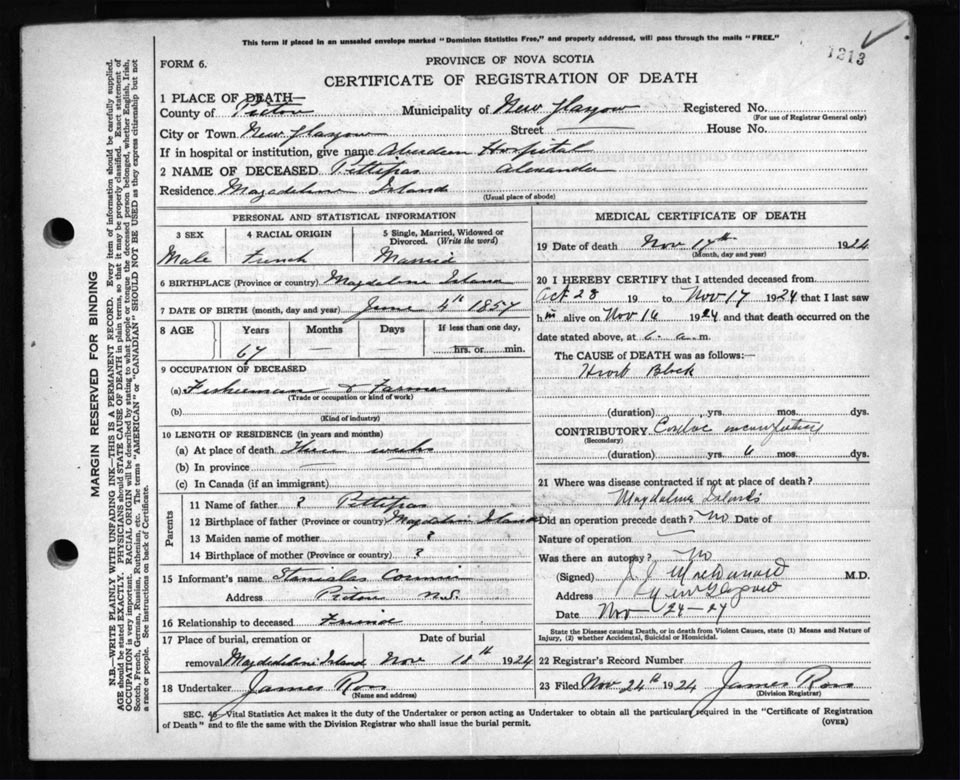 This form if placed in an unsealed envelope marked "Dominion Statistics Free," and properly addressed, will pass through the mails "FREE."
1213
FORM 6.
PROVINCE OF NOVA SCOTIA
CERTIFICATE OF REGISTRATION OF DEATH
1 PLACE OF DEATH—
County of Pictou Municipality of New Glasgow Registered No.
(For use of Registrar General only)
City or Town New Glasgow Street House No.
If in hospital or institution, give name Aberdeen Hospital
2 NAME OF DECEASED Pettipas Alexander
Residence Magdeline Island
(Usual place of abode)
PERSONAL AND STATISTICAL INFORMATION
3 SEX
Male
4 RACIAL ORIGIN
French
5 Single, Married, Widowed or Divorced. (Write the word)
Married
6 BIRTHPLACE (Province or country) Magdeline Island
7 DATE OF BIRTH (month, day and year) June 4th 1857
8 AGE Years Months Days If less than one day,
67 hrs. or min.
9 OCCUPATION OF DECEASED
(a) Fisherman & Farmer
(Trade or occupation or kind of work)
(b)
(Kind of industry)
10 LENGTH OF RESIDENCE (in years and months)
(a) At place of death Three weeks
(b) In province —
(c) In Canada (if an immigrant)
Parents
11 Name of father ? Pettipas
12 Birthplace of father (Province or country) Magdeline Island
13 Maiden name of mother ?
14 Birthplace of mother (Province or country) ?
15 Informant's name Stanislas
Address Pictou N.S.
16 Relationship to deceased Friend
17 Place of burial, cremation or Date of burial
removal Magdeline Island Nov 18th 1924
18 Undertaker James Ross
(Name and address)
MEDICAL CERTIFICATE OF DEATH
19 Date of death Nov 17th 1924
(Month, day and year)
20 I HEREBY CERTIFY that I attended deceased from
Oct 28 19 to Nov 17 1924 that I last saw
him alive on Nov 16 1924 and that death occurred on the
date stated above, at 6 a.m.
The CAUSE of DEATH was as follows:—
Heart Block
(duration) yrs. mos. dys.
CONTRIBUTORY Cardiac
(Secondary)
(duration) yrs. 6 mos. dys.
21 Where was disease contracted if not at place of death?
Magdaline Islands
Did an operation precede death? No Date of
Nature of operation —
Was there an autopsy? No
(Signed) M.D.
Address New Glasgow
Date Nov 24-24
State the Disease causing Death, or in death from Violent Causes, state (1) Means and Nature of Injury, (2) whether Accidental, Suicidal or Homicidal.
22 Registrar's Record Number
23 Filed Nov 24th 1924 James Ross
(Division Registrar)
SEC. Vital Statistics Act makes it the duty of the Undertaker or person acting as Undertaker to obtain all the particulars required in the "Certificate of Registration
of Death" and to file the same with the Division Registrar who shall issue the burial permit.
(OVER)
MARGIN RESERVED FOR BINDING
N.B.—WRITE PLAINLY WITH UNFADING INK—THIS IS A PERMANENT RECORD. Every item of information should be carefully supplied.
AGE should be stated EXACTLY. PHYSICIANS should STATE CAUSE OF DEATH in plain terms, so that it may be properly classified. Exact statement of
OCCUPATION is very important. RACIAL ORIGIN will be described by stating to what people or tongue the deceased person belonged, whether English, Irish,
Scotch, French, German, Russian, Ruthenian, etc. The terms "AMERICAN" or "CANADIAN" SHOULD NOT BE USED as they express citizenship but not
a race or people. See instructions on back of Certificate.